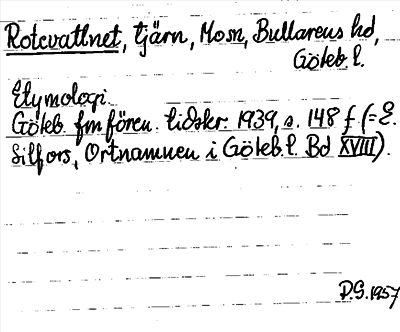 Rotevattnet, tjärn, Mosn, Bullarens hd,
Göteb. l.
Etymologi.
Göteb. fm fören. tidskr. 1939, s. 148 f (= E.
Silfors, Ortnamnen i Göteb. l. Bd XVIII).
D.G. 1957